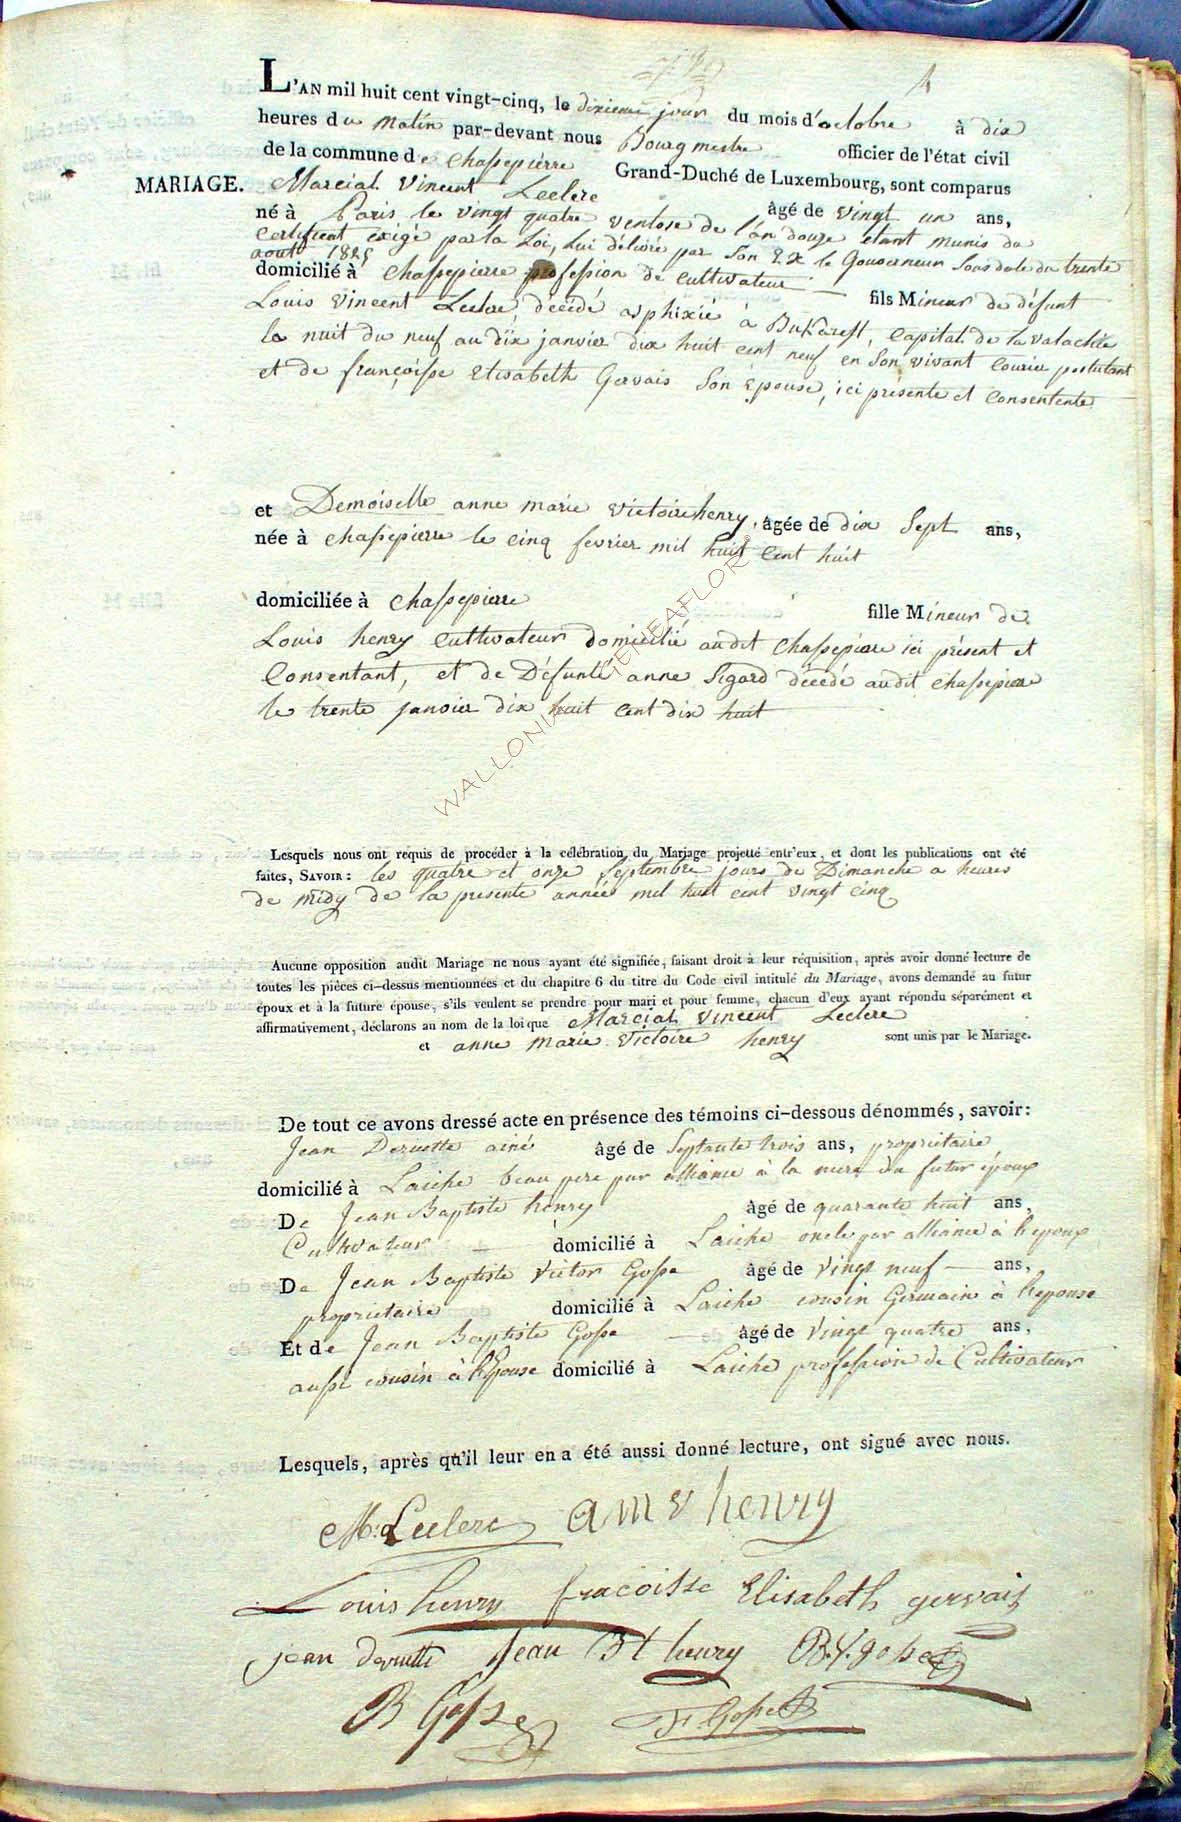 4
L'AN mil huit cent vingt-cinq, le dixieme jour du mois d'octobre à dix
heures du Matin par-devant nous Bourgmestre officier de l'état civil
de la commune de Chassepierre Grand-Duché de Luxembourg, sont comparus
MARIAGE. Marcial Vincent Leclerc âgé de vingt un ans,
né à Paris le vingt quatre ventose de l'an douze étant munis du
certificat exigé par la Loi, lui délivré par Son Ex le Gouverneur sous date du trente
aout 1825
domicilié à Chassepierre profession de cultivateur fils Mineur de défunt
Louis Vincent Leclerc, décédé asphixié à Bukarest, Capital de la valachie
la nuit du neuf au dix janvier dix huit cent neuf en Son vivant Courier postulant
et de françoisse Elisabeth Gervais Son Epouse, ici présente et Consentente
et Demoiselle anne marie Victoire henry, âgée de dix Sept ans,
née à chassepierre le cinq fevrier mil huit cent huit
domiciliée à chassepierre fille Mineur de
Louis henry Cultivateur domicilié audit Chassepierre ici présent et
Consentant, et de Défunte anne Sigard décédé audit chassepierre
le trente janvier dix huit cent dix huit
WALLONIE GENEAFLOR
Lesquels nous ont requis de procéder à la célébration du Mariage projetté entr'eux, et dont les publications ont été
faites, SAVOIR : les quatre et onze Septembre jours de Dimanche a heures
de midy de la presente année mil huit cent vingt cinq
Aucune opposition audit Mariage ne nous ayant été signifiée, faisant droit à leur réquisition, après avoir donné lecture de
toutes les pièces ci-dessus mentionnées et du chapitre 6 du titre du Code civil intitulé du Mariage, avons demandé au futur
époux et à la future épouse, s'ils veulent se prendre pour mari et pour femme, chacun d'eux ayant répondu séparément et
affirmativement, déclarons au nom de la loi que Marcial Vincent Leclerc
et anne Marie Victoire henry sont unis par le Mariage.
De tout ce avons dressé acte en présence des témoins ci-dessous dénommés, savoir:
Jean Deruette ainé âgé de Septante trois ans, propriétaire
domicilié à Laiche beau pere par alliance à la mere du futur époux
De Jean Baptiste henry âgé de quarante huit ans,
Cultivateur domicilié à Laiche oncle par alliance à l'epoux
De Jean Baptiste Victor Gosse âgé de Vingt neuf ans,
propriétaire domicilié à Laiche cousin Germain à l'epouse
Et de Jean Baptiste Gosse âgé de Vingt quatre ans,
aussi cousin à l'Epouse domicilié à Laiche profession de Cultivateur
Lesquels, après qu'il leur en a été aussi donné lecture, ont signé avec nous.
M. Leclerc a m v henry
Louis henry fracoisse Elisabeth gervais
jean deruette Jean Bt henry B.V. gosse
B Gosse F. Gosse